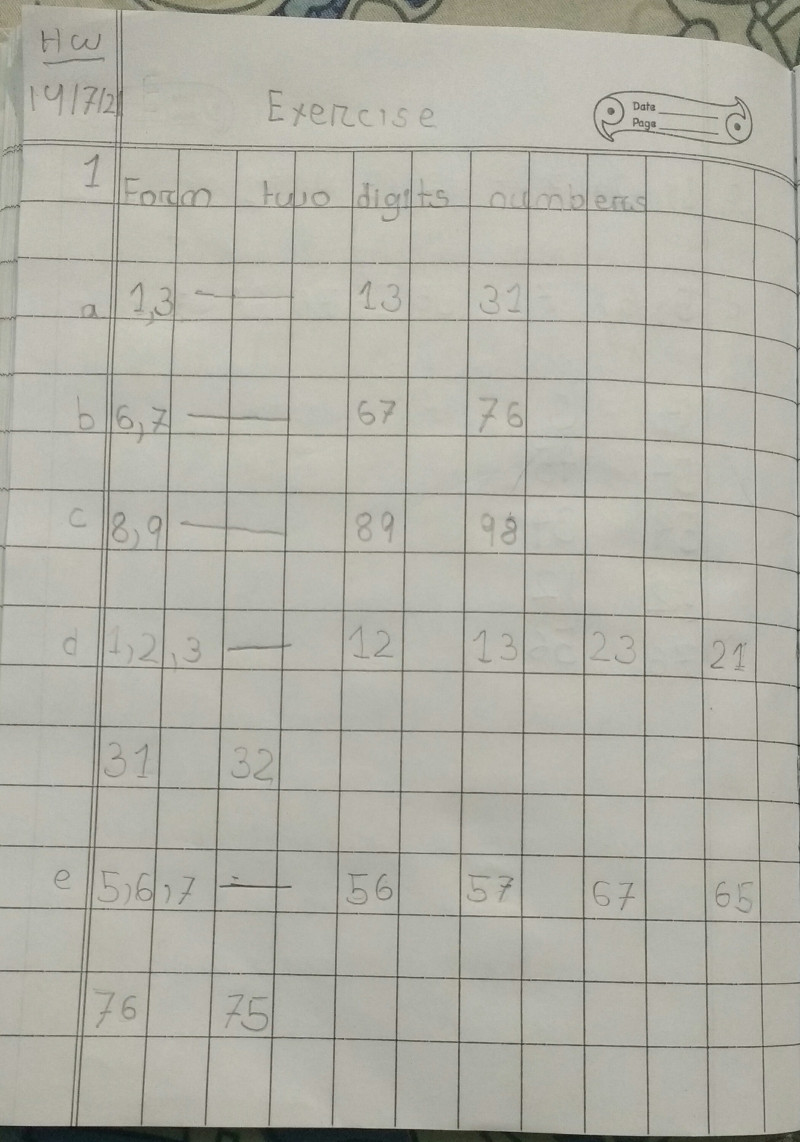 HW
14/7/21
Exercise
Date
Page
1 Form two digits numbers
a 1,3 — 13 31
b 6,7 — 67 76
c 8,9 — 89 98
d 1,2,3 — 12 13 23 21
31 32
e 5,6,7 — 56 57 67 65
76 75